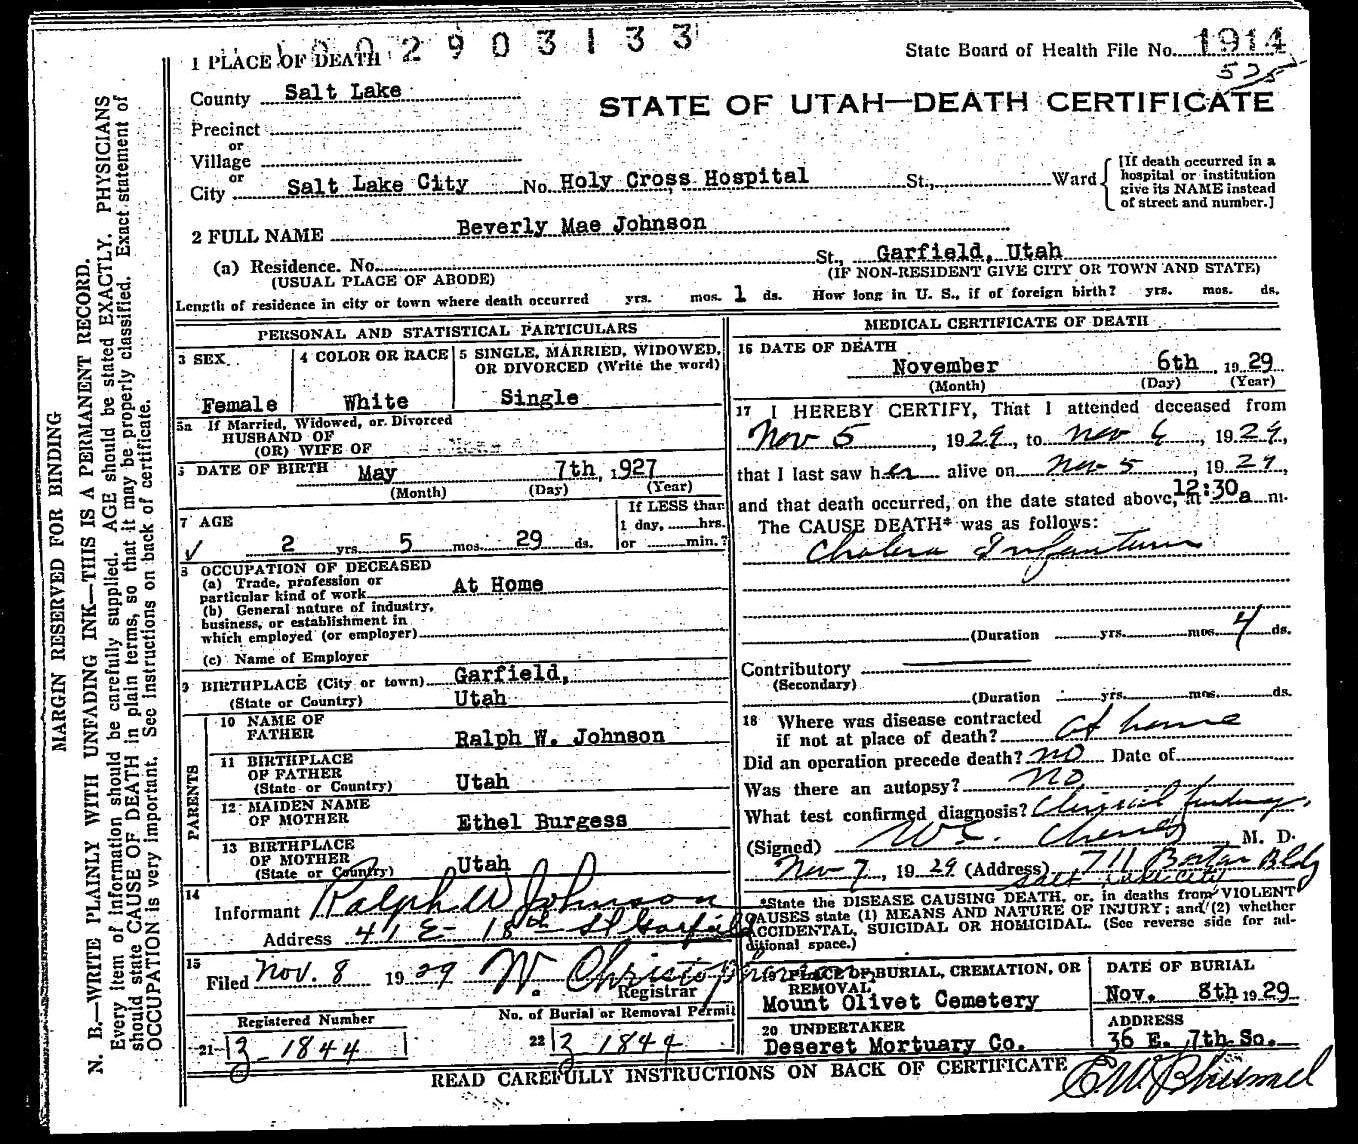 002903133
State Board of Health File No. 1914
525
1 PLACE OF DEATH
County Salt Lake
STATE OF UTAH—DEATH CERTIFICATE
Precinct
or
Village
or
City Salt Lake City No. Holy Cross Hospital St., Ward
[If death occurred in a
hospital or institution
give its NAME instead
of street and number.]
2 FULL NAME Beverly Mae Johnson
(a) Residence. No. St., Garfield, Utah
(USUAL PLACE OF ABODE) (IF NON-RESIDENT GIVE CITY OR TOWN AND STATE)
Length of residence in city or town where death occurred yrs. mos. 1 ds. How long in U. S., if of foreign birth? yrs. mos. ds.
PERSONAL AND STATISTICAL PARTICULARS
3 SEX 4 COLOR OR RACE 5 SINGLE, MARRIED, WIDOWED,
OR DIVORCED (Write the word)
Female White Single
5a If Married, Widowed, or Divorced
HUSBAND OF
(OR) WIFE OF
DATE OF BIRTH May 7th, 1927
(Month) (Day) (Year)
7 AGE If LESS than
1 day, hrs.
2 yrs. 5 mos. 29 ds. or min.?
8 OCCUPATION OF DECEASED
(a) Trade, profession or
particular kind of work At Home
(b) General nature of industry,
business, or establishment in
which employed (or employer)
(c) Name of Employer
9 BIRTHPLACE (City or town) Garfield,
(State or Country) Utah
PARENTS
10 NAME OF
FATHER Ralph W. Johnson
11 BIRTHPLACE
OF FATHER
(State or Country) Utah
12 MAIDEN NAME
OF MOTHER Ethel Burgess
13 BIRTHPLACE
OF MOTHER
(State or Country) Utah
14
Informant Ralph W Johnson
Address 41 E- 18th St Garfield
15
Filed Nov. 8 1929 W. Christopherson
Registrar
Registered Number No. of Burial or Removal Permit
21 3-1844 22 3-1844
MEDICAL CERTIFICATE OF DEATH
16 DATE OF DEATH
November 6th, 1929
(Month) (Day) (Year)
17 I HEREBY CERTIFY, That I attended deceased from
Nov 5, 1929, to Nov 6, 1929,
that I last saw her alive on Nov 5, 1929,
and that death occurred, on the date stated above, at 12:30a m.
The CAUSE DEATH* was as follows:
Cholera Infantum
(Duration yrs. mos. 4 ds.
Contributory
(Secondary)
(Duration yrs. mos. ds.
18 Where was disease contracted
if not at place of death? At home
Did an operation precede death? no Date of
Was there an autopsy? no
What test confirmed diagnosis? Clinical findings
(Signed) M. D.
Nov 7, 1929 (Address) 711 Boston Bldg
Salt Lake City
*State the DISEASE CAUSING DEATH, or, in deaths from VIOLENT
CAUSES state (1) MEANS AND NATURE OF INJURY; and (2) whether
ACCIDENTAL, SUICIDAL OR HOMICIDAL. (See reverse side for additional space.)
19 PLACE OF BURIAL, CREMATION, OR
REMOVAL
Mount Olivet Cemetery
DATE OF BURIAL
Nov. 8th 1929
20 UNDERTAKER
Deseret Mortuary Co.
ADDRESS
36 E. 7th So.
READ CAREFULLY INSTRUCTIONS ON BACK OF CERTIFICATE
MARGIN RESERVED FOR BINDING
N. B.—WRITE PLAINLY WITH UNFADING INK—THIS IS A PERMANENT RECORD.
Every item of information should be carefully supplied. AGE should be stated EXACTLY. PHYSICIANS
should state CAUSE OF DEATH in plain terms, so that it may be properly classified. Exact statement of
OCCUPATION is very important. See instructions on back of certificate.